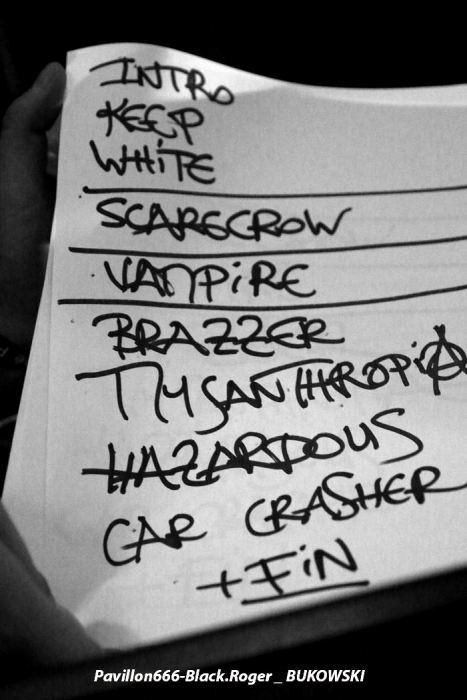 INTRO
KEEP
WHiTE
SCARECROW
VAMPiRE
BRAZZER
MYSANTHROPiA
HAZARDOUS
CAR CRASHER
+ FiN
Pavillon666-Black.Roger _ BUKOWSKI